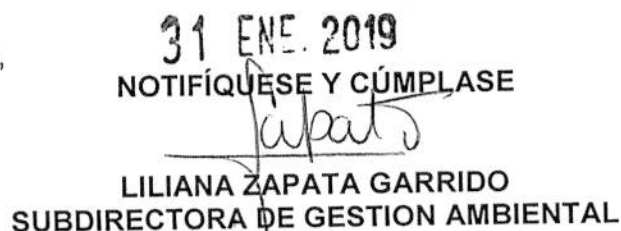 31 ENE. 2019
NOTIFÍQUESE Y CÚMPLASE
Zapata
LILIANA ZAPATA GARRIDO
SUBDIRECTORA DE GESTION AMBIENTAL